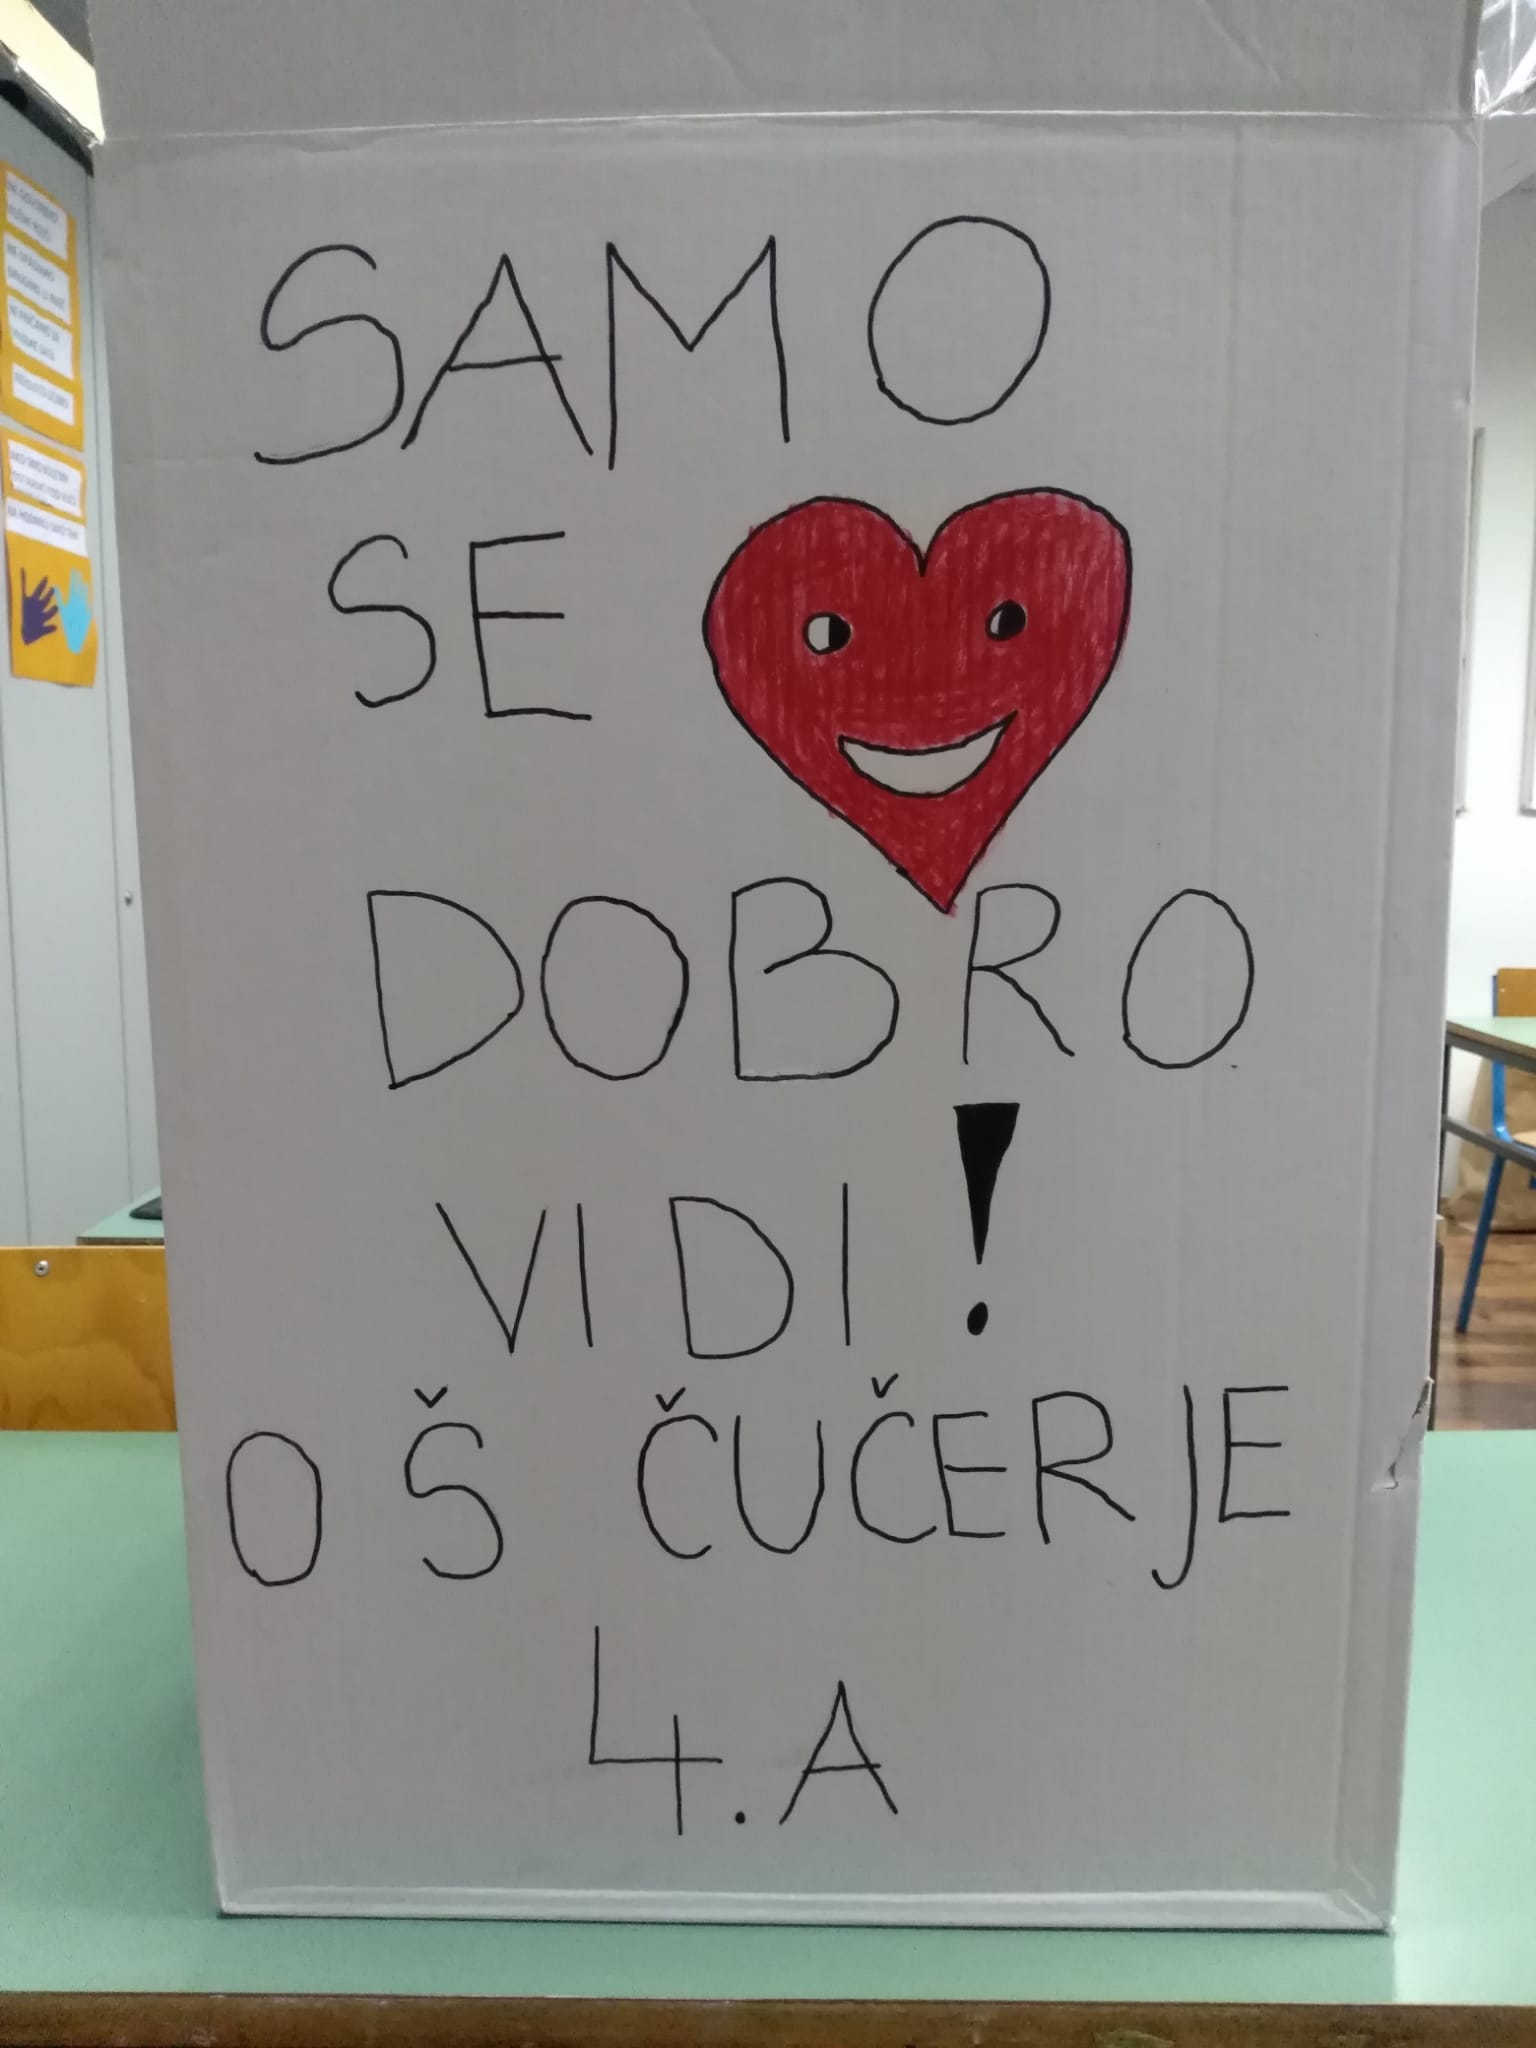 SAMO
SE
DOBRO
VIDI!
OŠ ČUČERJE
4.A